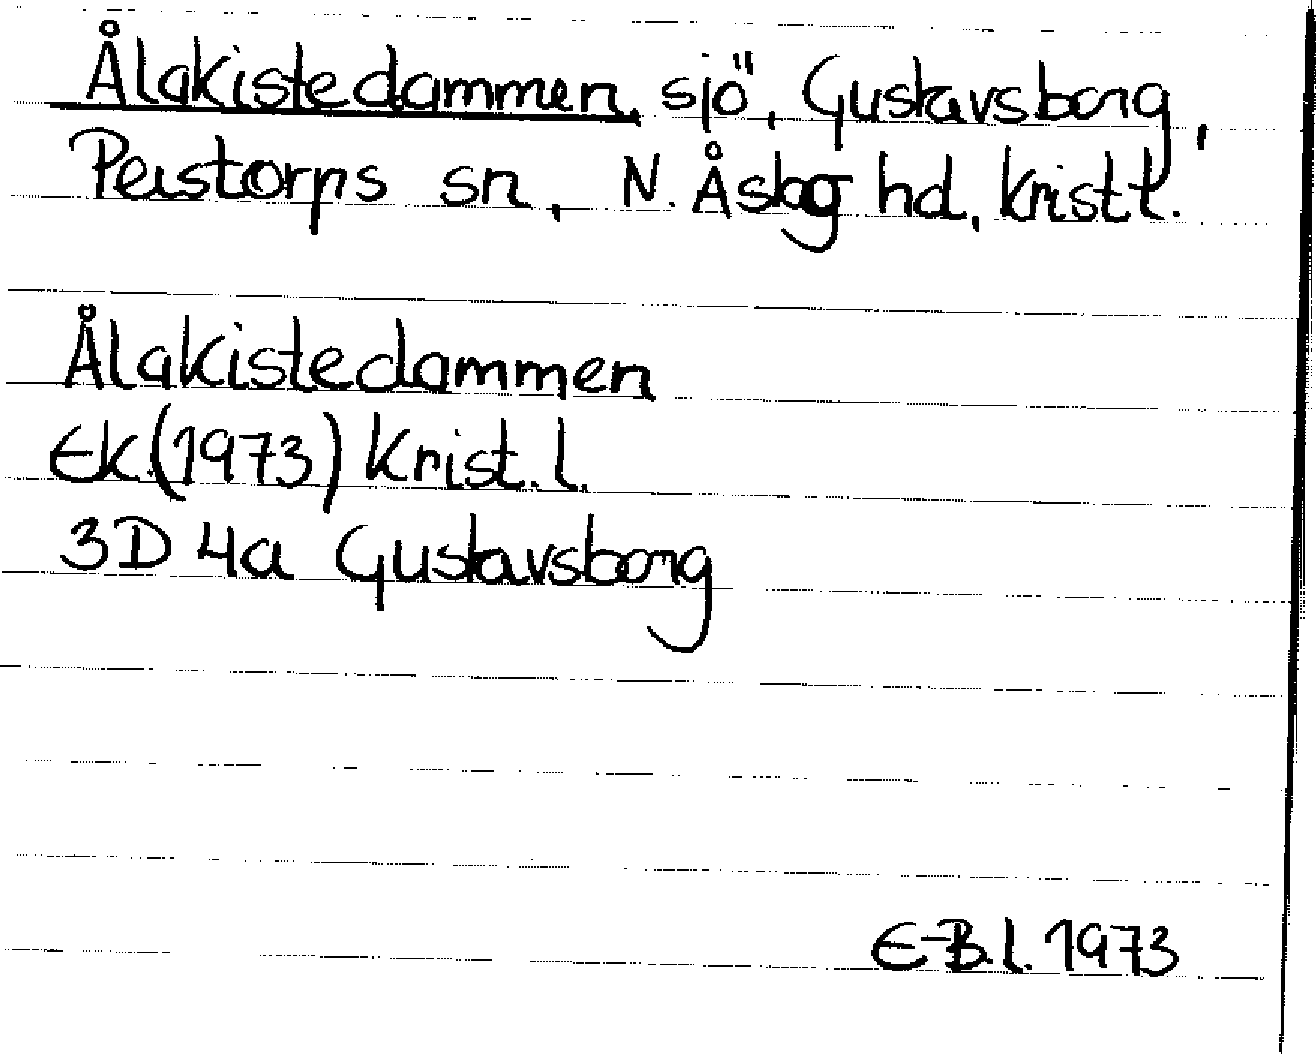 Ålakistedammen, sjö, Gustavsborg,
Perstorps sn, N. Åsbg hd, Krist l.
Ålakistedammen
Ek.(1973) Krist. l.
3D 4a Gustavsborg
E-B.l. 1973